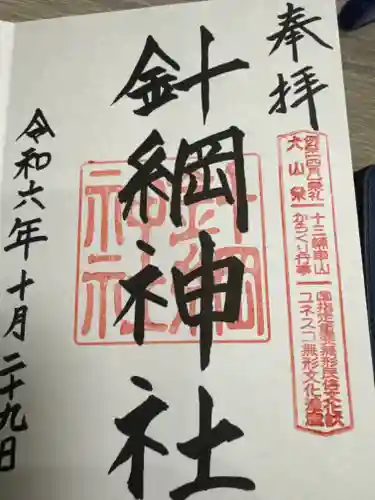 奉拝
四月第一土日祭礼
犬山祭
十三輌車山
からくり行事
国指定重要無形民俗文化財
ユネスコ無形文化遺産
針綱神社
針綱
神社
令和六年十月二十九日